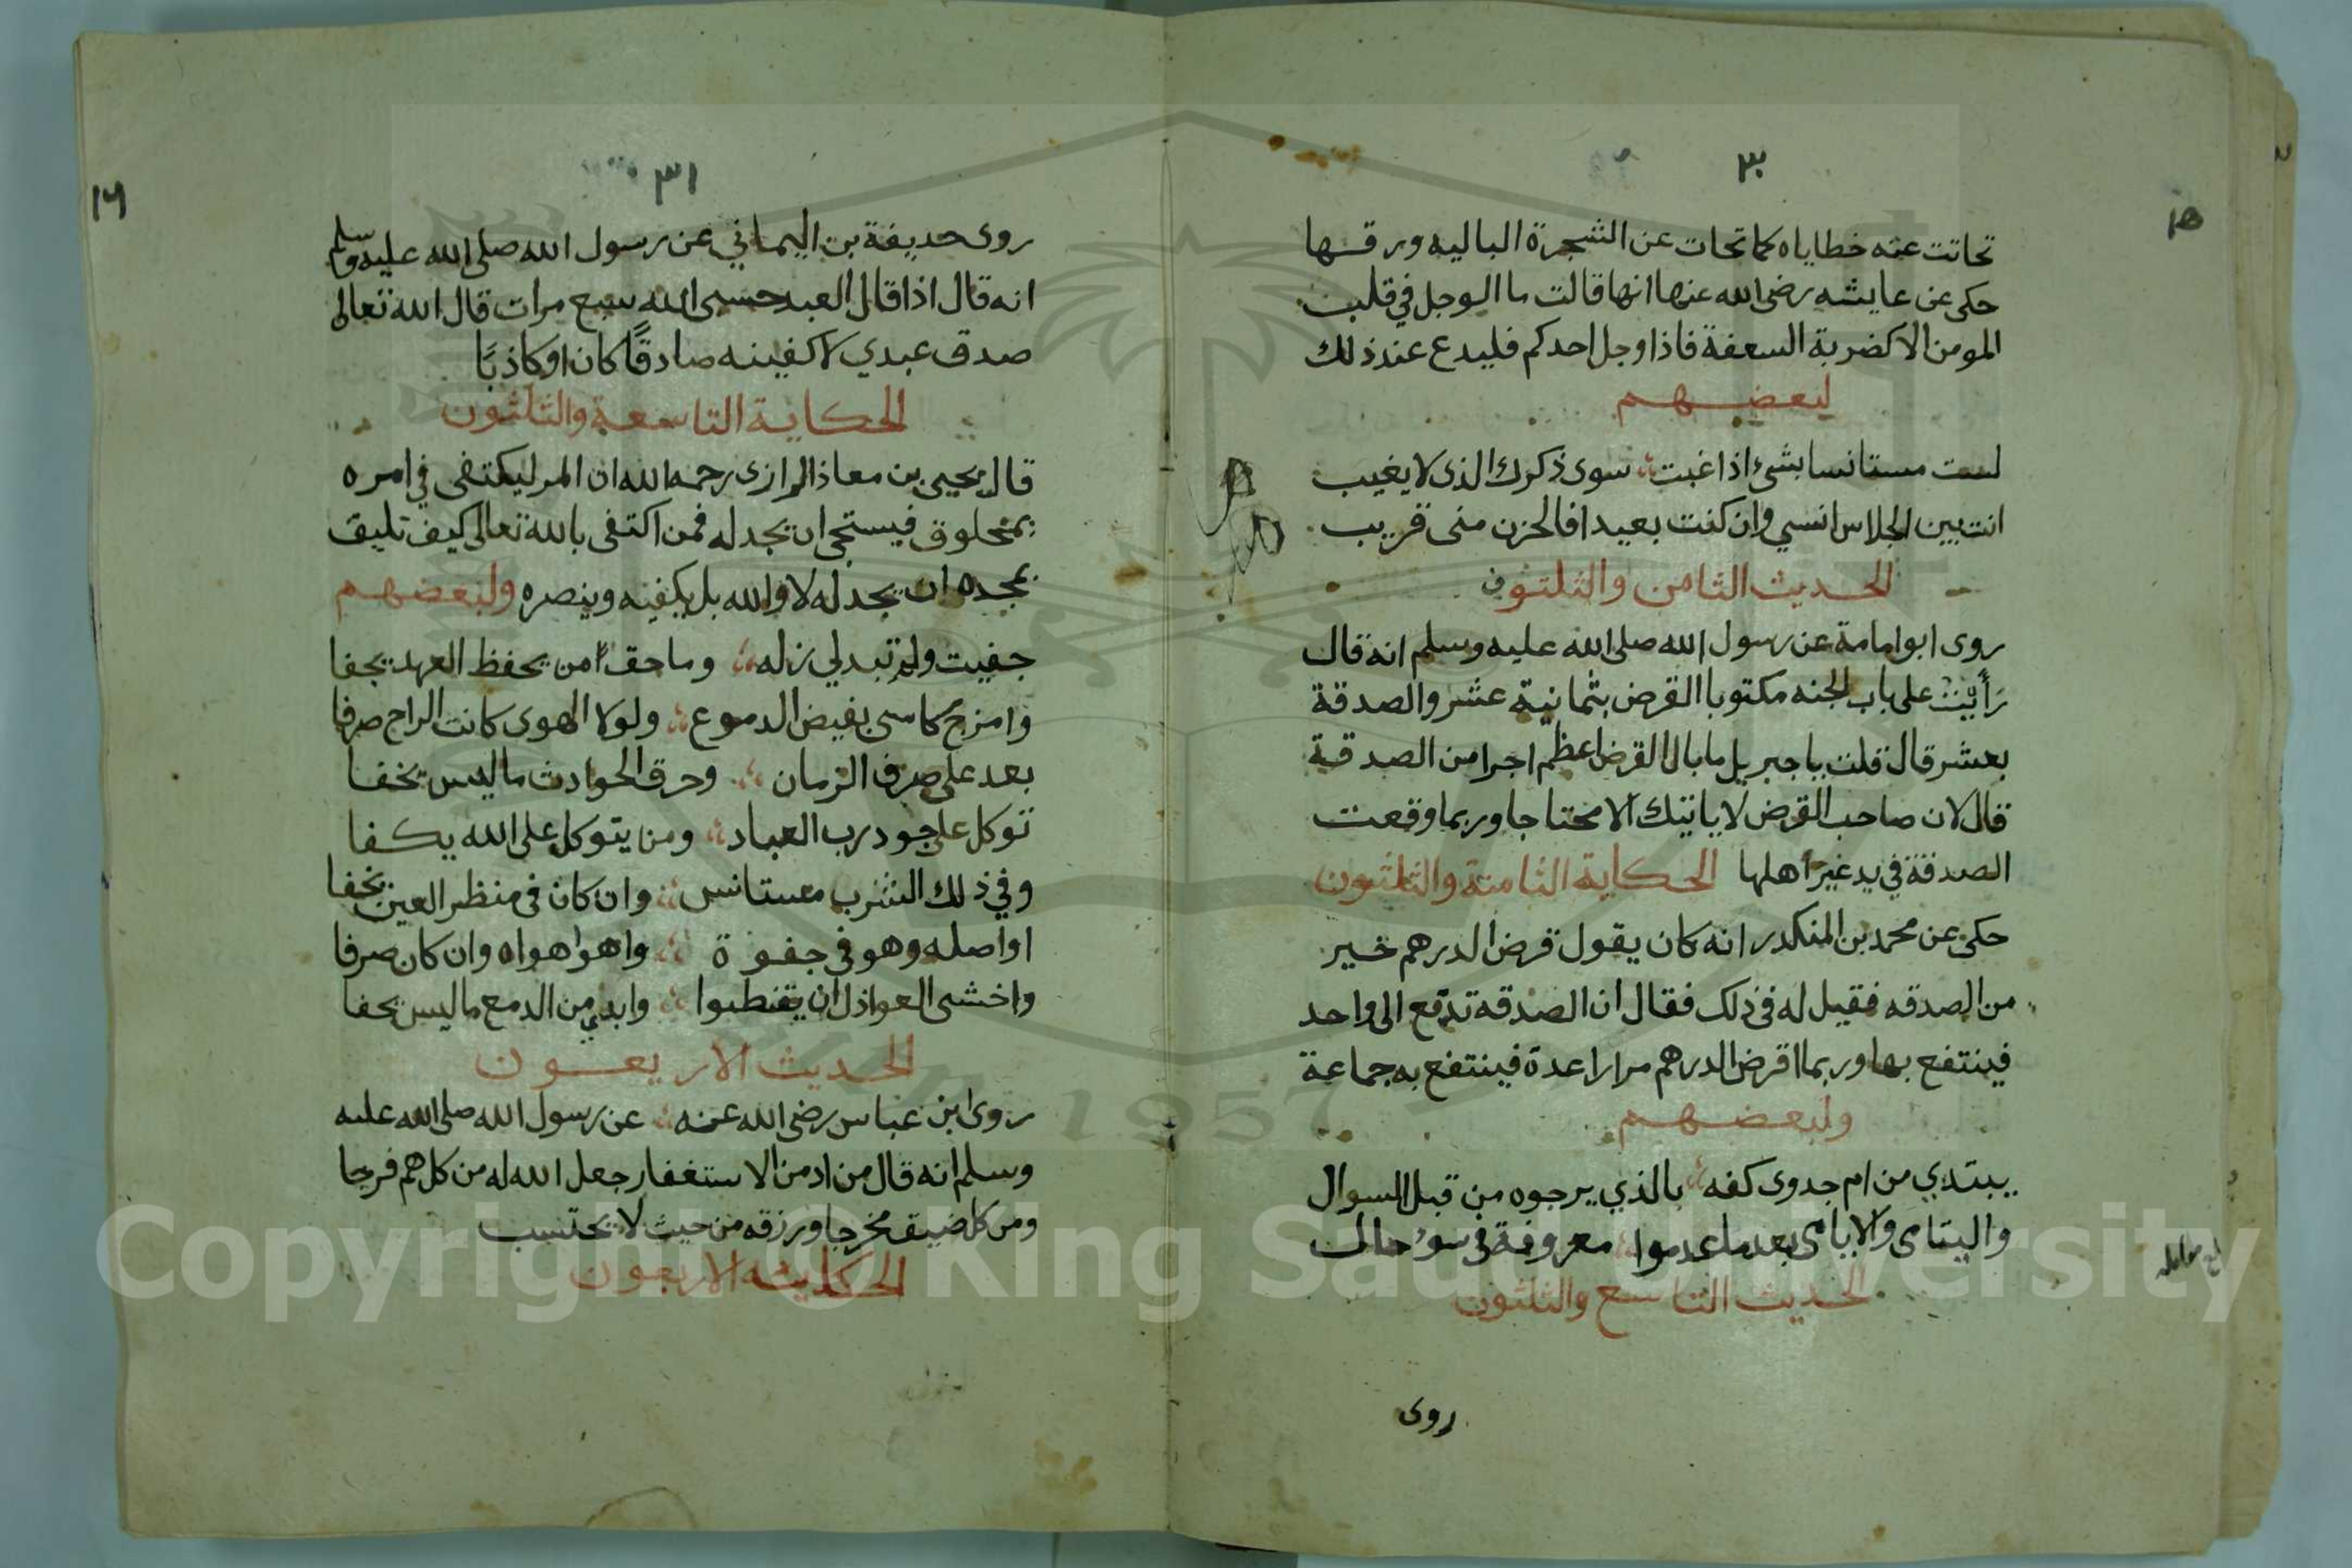 ٣٠
١٥
تحاتت عنه خطاياه كما تحات عن الشجرة الباليه ورقها
حكى عن عايشه رضى الله عنها انها قالت ما الوجل في قلب
المومن الا كضربة السعفة فاذا وجل احدكم فليدع عند ذلك
لبعضهم
لست مستانسا بشئ اذا غبت سوى ذكرك الذى لا يغيب
انت بين الجلاس انسي وان كنت بعيدا فالحزن منى قريب
الحديث الثامن والثلثون
روى ابو امامة عن رسول الله صلى الله عليه وسلم انه قال
رَأَيْتُ على باب الجنه مكتوبا القرض بثمانية عشر والصدقة
بعشر قال قلت يا جبريل ما بال القرض اعظم اجرا من الصدقة
قال لان صاحب القرض لا ياتيك الا محتاجا وربما وقعت
الصدقة في يد غير اهلها الحكاية الثامنة والثلثون
حكى عن محمد بن المنكدر انه كان يقول قرض الدرهم خير
من الصدقه فقيل له فى ذلك فقال ان الصدقه تدفع الى واحد
فينتفع بها وربما اقرض الدرهم مرارا عدة فينتفع به جماعة
ولبعضهم
يبتدي من ام جدوى كفه بالذي يرجوه من قبل السوال
واليتامى والايامى بعد ما عدموا معروفة فى سوء حال
الحديث التاسع والثلثون
روى
٣١
١٦
روى حديفة بن اليماني عن رسول الله صلى الله عليه وسلم
انه قال اذا قال العبد حسبى الله سبع مرات قال الله تعالى
صدق عبدي لاكفينه صادقًا كان او كاذبًا
الحكاية التاسعة والثلثون
قال يحيى بن معاذ الرازى رحمه الله ان المر ليكتفى في امره
بمخلوق فيستحى ان يجدله فمن اكتفى بالله تعالى كيف تليق
بمجده ان يجدله لا والله بل يكفيه وينصره ولبعضهم
جفيت ولم تبد لي زله وما حق من يحفظ العهد يجفا
وامزج كاسى بفيض الدموع ولولا الهوى كانت الراح صرفا
بعد على صرف الزمان وحرق الحوادث ما ليس يخفا
توكل على جود رب العباد ومن يتوكل على الله يكفا
وفي ذلك الشرب مستانس وان كان فى منظر العين يخفا
اواصله وهو فى جفوة واهوا هواه وان كان صرفا
واخشى العواذل ان يفطنوا وابدي من الدمع ما ليس يخفا
الحديث الاربعون
روى ابن عباس رضى الله عنه عن رسول الله صلى الله عليه
وسلم انه قال من ادمن الاستغفار جعل الله له من كل هم فرجا
ومن كل ضيق مخرجا ورزقه من حيث لا يحتسب
الحكاية الاربعون
Copyright © King Saud University
1957